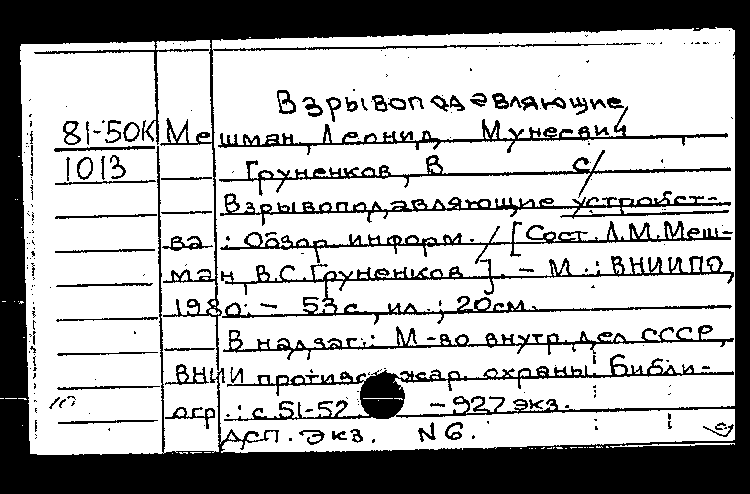 Взрывоподавляющие
81-50К Мешман, Леонид Мунеевич
1013 Груненков, В с/
Взрывоподавляющие устройст-
ва : Обзор. информ. / [Сост. Л.М. Меш-
ман, В.С. Груненков]. - М. : ВНИИПО,
1980. - 53 с., ил. ; 20см.
В надзаг.: М-во внутр. дел СССР,
ВНИИ противопожар. охраны. Библи-
огр.: с. 51-52 - 927 экз.
ДСП. Экз. N 6.